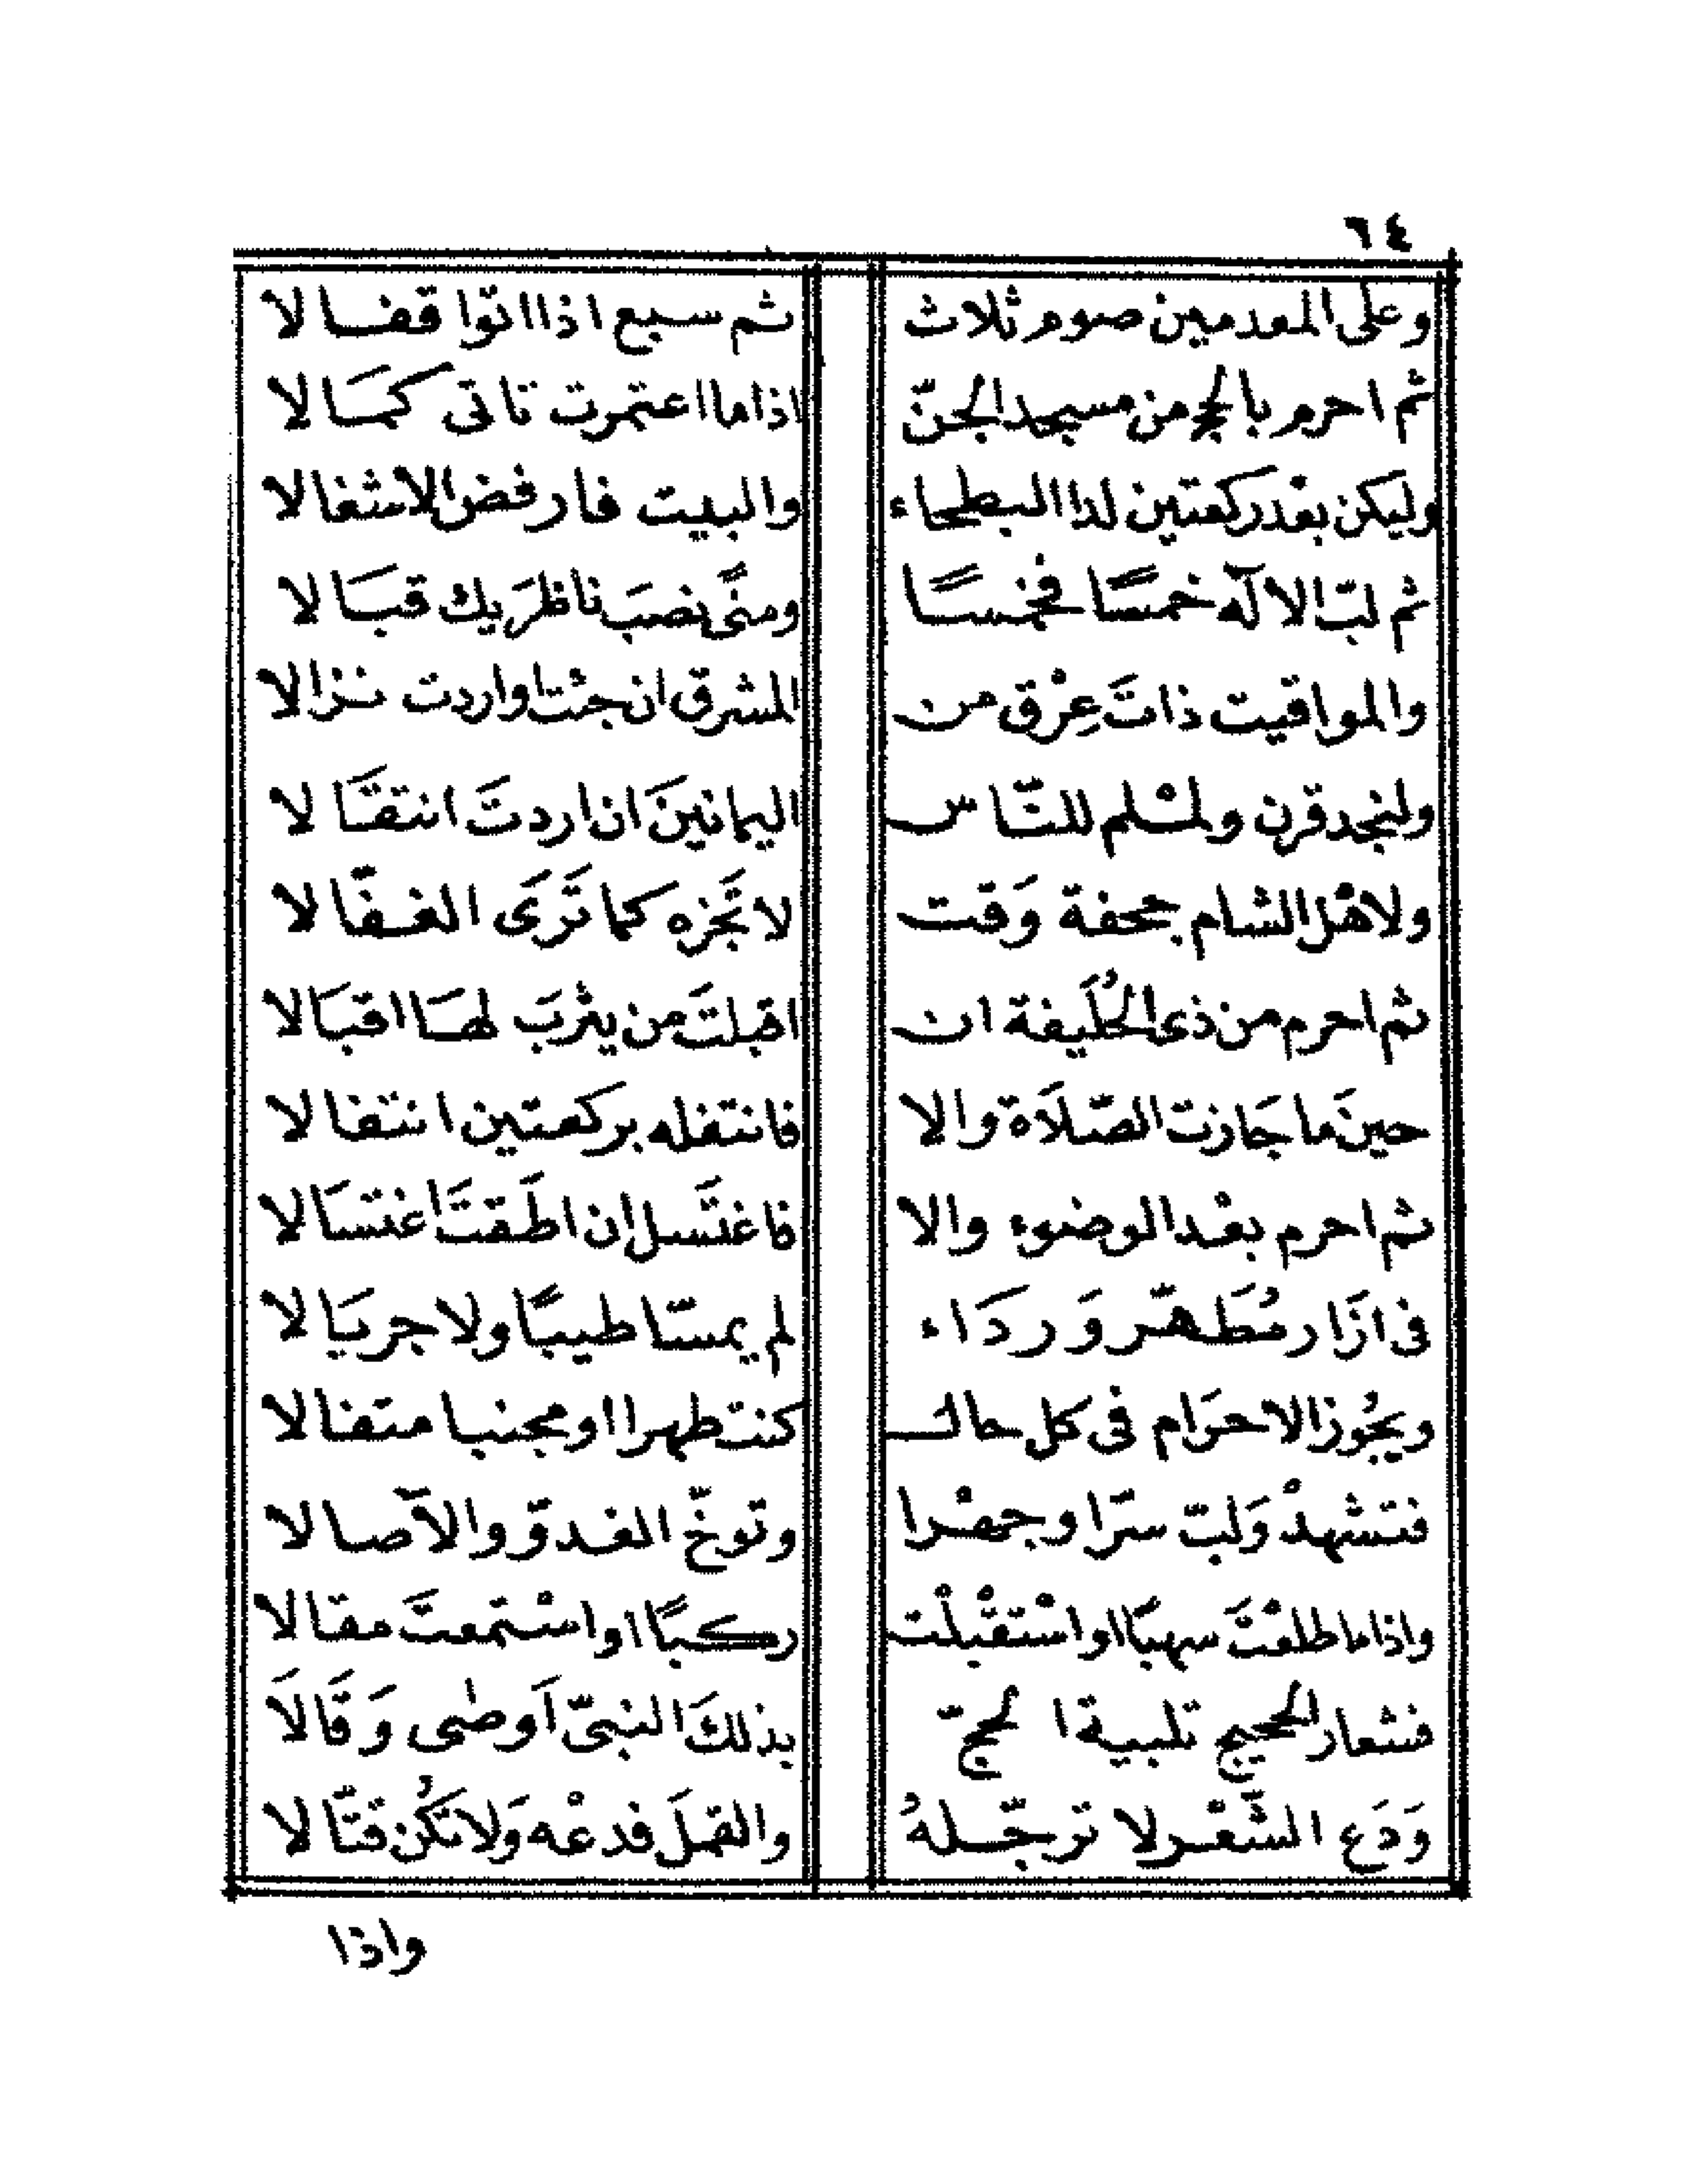 ٦٤
وعلى المعدمين صوم ثلاث ثم سبع اذا اتوا قفالا
ثم احرم بالحج من مسجد الجنّ اذا ما اعتمرت تاتى كمَالا
وليكن بعْد ركعتين لذا البطحاء والبيت فارفض الاشغالا
ثم لبّ الاله خمسًا فخمسًا ومنًى نصبَ ناظرَيك قبَالا
والمواقيت ذاتَ عِرْق من المشرق ان جئتا واردت نزالا
ولنجد قرن ولمسْلم للنّاس اليمانينَ ان اردتَ انتقَالا
ولاهْل الشام جحفة وَقت لا تَجزه كما تَرَى الغفّالا
ثم احرم من ذى الحُلَيفة ان اقبلتَ من يثربَ لهَا اقبَالا
حينَ ما جَازت الصّلاَة والا فانتفله بركعتين انتفالا
ثم احرم بعْد الوضوء والا فاغتَسل ان اطَقتَ اغتسَالا
فى ازَار مُطَهّر وَردَاء لم يمسّا طيبًا ولا جريَالا
ويجُوز الاحرَام فى كل حال كنت طهرا او مجنبا متفالا
فتشهدْ وَلبّ سرّا وجهْرا وتوخّ الغدوّ والآصالا
واذا ما طلعْتَ سهبًا او اسْتقْبلْت ركبًا او استْمعتَ مقالا
فشعار الحجيج تلبية الحجّ بذلكَ النبىّ اَوصٰى وَقَالاَ
وَدَع الشّعْر لا ترجّلهُ والقملَ فدعْه وَلا تكُن قتّالا
واذا